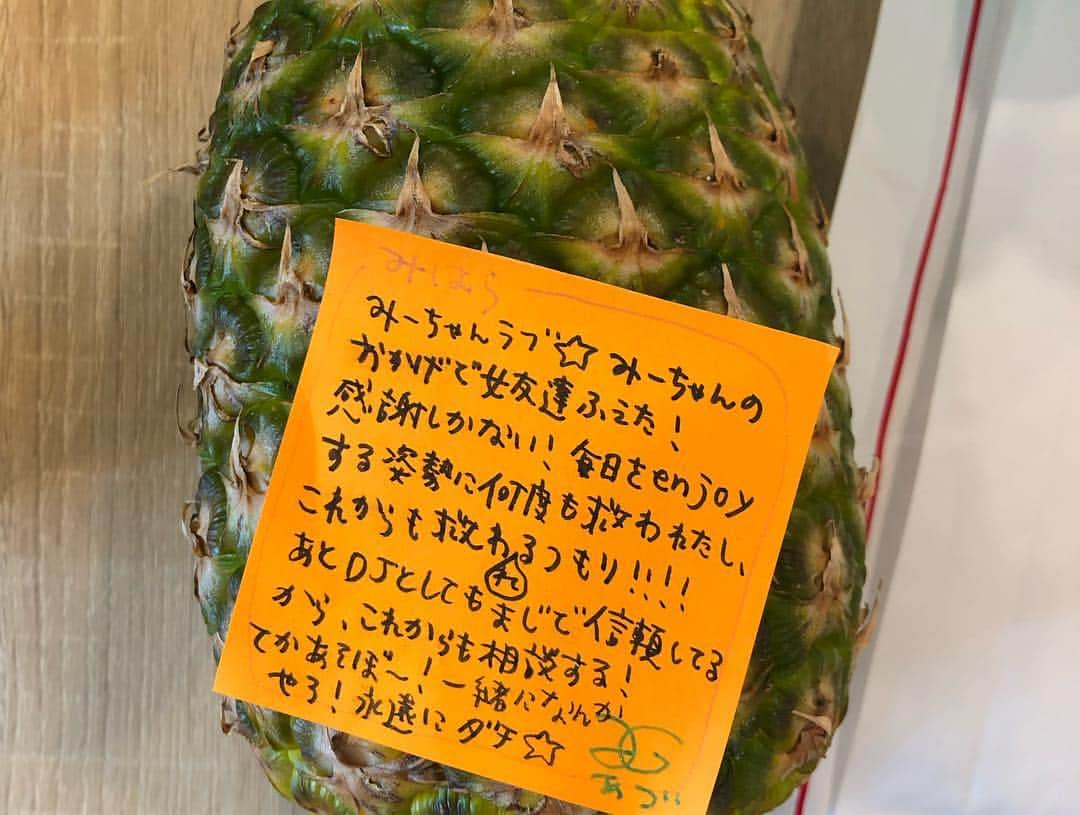 みしまむら
みーちゃんラブ☆ みーちゃんの
おかげで女友達ふえた！
感謝しかない！ 毎日をenjoy
する姿勢に何度も救われたし、
これからも救われるつもり!!!!
あとDJとしてもまじで信頼してる
から、これからも相談する！
てかあそぼ〜！一緒になんか
やろ！永遠にダチ☆